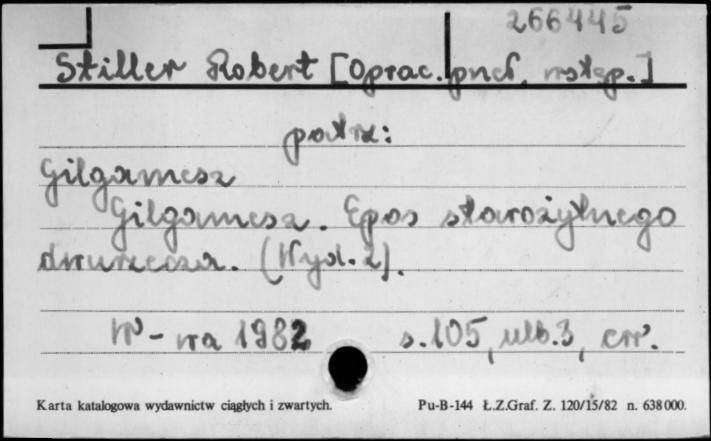 266445
Stiller Robert [Oprac. przeł. wstęp.]
patrz:
Gilgamesz
Gilgamesz. Epos starożytnego
dwurzecza. (Wyd. 2).
W-wa 1982 s. 105, nlb. 3, err.
Karta katalogowa wydawnictw ciągłych i zwartych. Pu-B-144 Ł.Z.Graf. Z. 120/15/82 n. 638000.